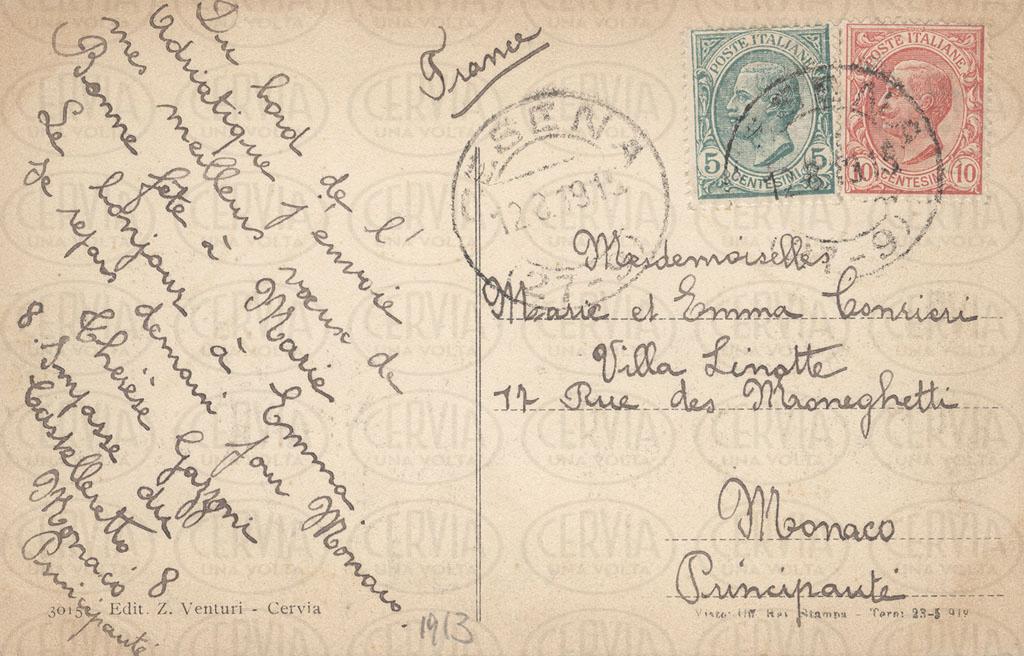 Du bord de l'
Adriatique j'envoie
mes meilleurs vœux de
Bonne fête à Marie
Le bonjour à Emma
Je repars demain pour Monaco
Thérèse Gazzoni
8. Impasse du
Castelleretto 8
Monaco
Principauté
France
CESENA
12.8.1913
(27-9)
POSTE ITALIANE
5 5
CENTESIMI
POSTE ITALIANE
CENTESIMI 10
Mesdemoiselles
Marie et Emma
Villa Linotte
17 Rue des Moneghetti
Monaco
Principauté
Edit. Z. Venturi - Cervia
1913
CERVIA
UNA VOLTA